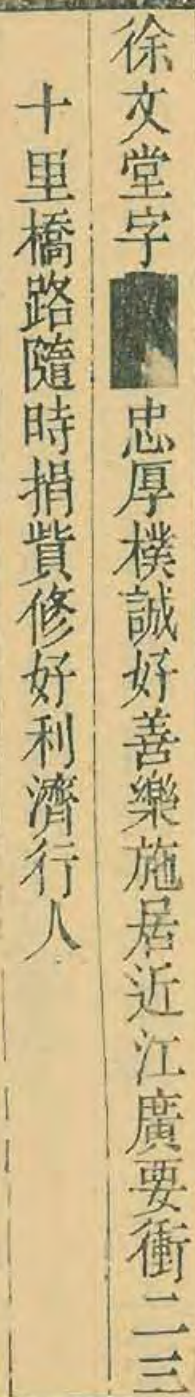 徐文堂字忠厚樸誠好善樂施居近江廣要衝二三
十里橋路隨時捐貲修好利濟行人